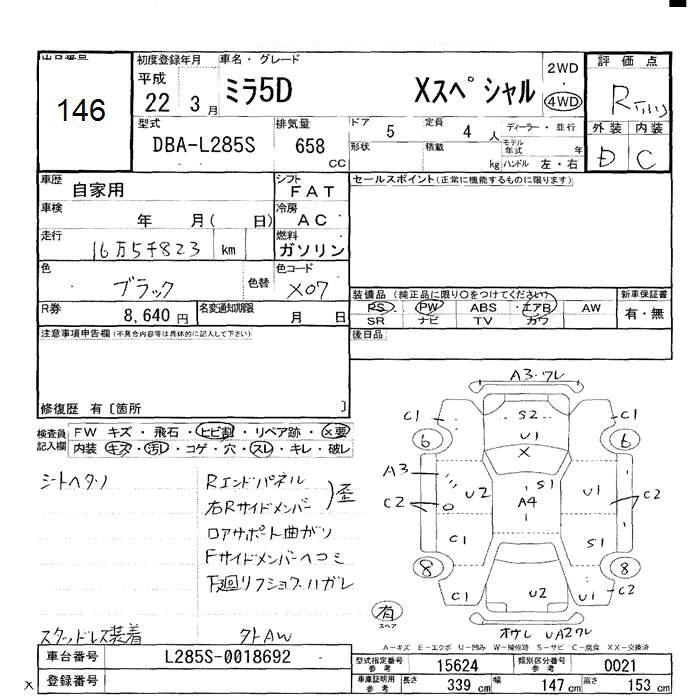 出品番号 初度登録年月 車名・グレード 2WD 評価点
146 平成 22 3月 ミラ5D Xスペシャル 4WD R
型式 排気量 ドア 定員 ディーラー・並行 外装 内装
DBA-L285S 658 CC 5 4人 モデル年式 年 D C
形状 積載 kg ハンドル 左・右
車歴 自家用 シフト FAT セールスポイント(正常に機能するものに限ります)
車検 年 月( 日) 冷房 AC
走行 16万5千823 km 燃料 ガソリン
色 ブラック 色替 色コード X07
装備品(純正品に限り○をつけてください) 新車保証書
R券 8,640円 名変通知期限 月 日 PS PW ABS エアB AW 有・無
SR ナビ TV カワ
注意事項申告欄(不具合内容等は具体的に記入して下さい) 後日品
修復歴 有〔箇所 〕
検査員記入欄 FW キズ・飛石・ヒビ割・リペア跡・×要
内装・キズ・汚レ・コゲ・穴・スレ・キレ・破レ
シートヘタリ Rエンドパネル
右Rサイドメンバー 歪
ロアサポート曲がり
Fサイドメンバーヘコミ
下廻リフショク、ハガレ
スタッドレス装着 タトAW
A3・ワレ
C1 S2 C1
6 U1 6
X
A3 S1
C2 U2 A4 U1 C2
C1 S1
8 8
C1 U2 U1 C2
有 スペア
オサレ UA2ワレ
A-キズ E-エクボ U-凹み W-補修跡 S-サビ C-腐食 XX-交換済
車台番号 L285S-0018692 型式指定番号 参考 15624 類別区分番号 参考 0021
X 登録番号 車庫証明用 参考 長さ 339 cm 幅 147 cm 高さ 153 cm